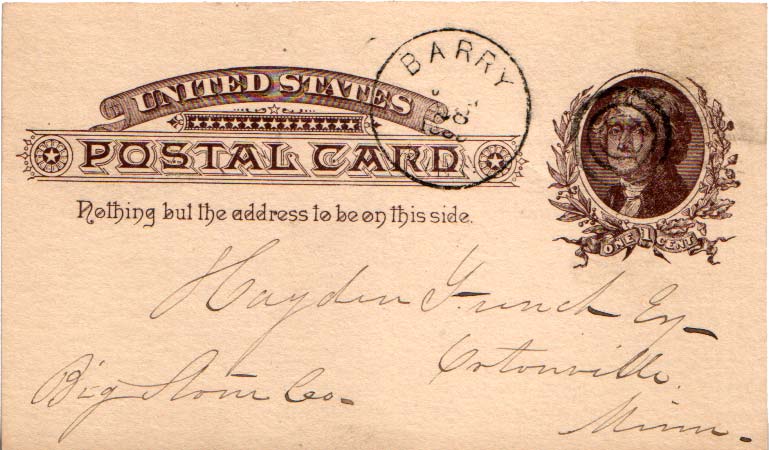 UNITED STATES
POSTAL CARD
BARRY
Nothing but the address to be on this side.
ONE 1 CENT
Hayden French Esq
Ortonville
Big Stone Co.
Minn.